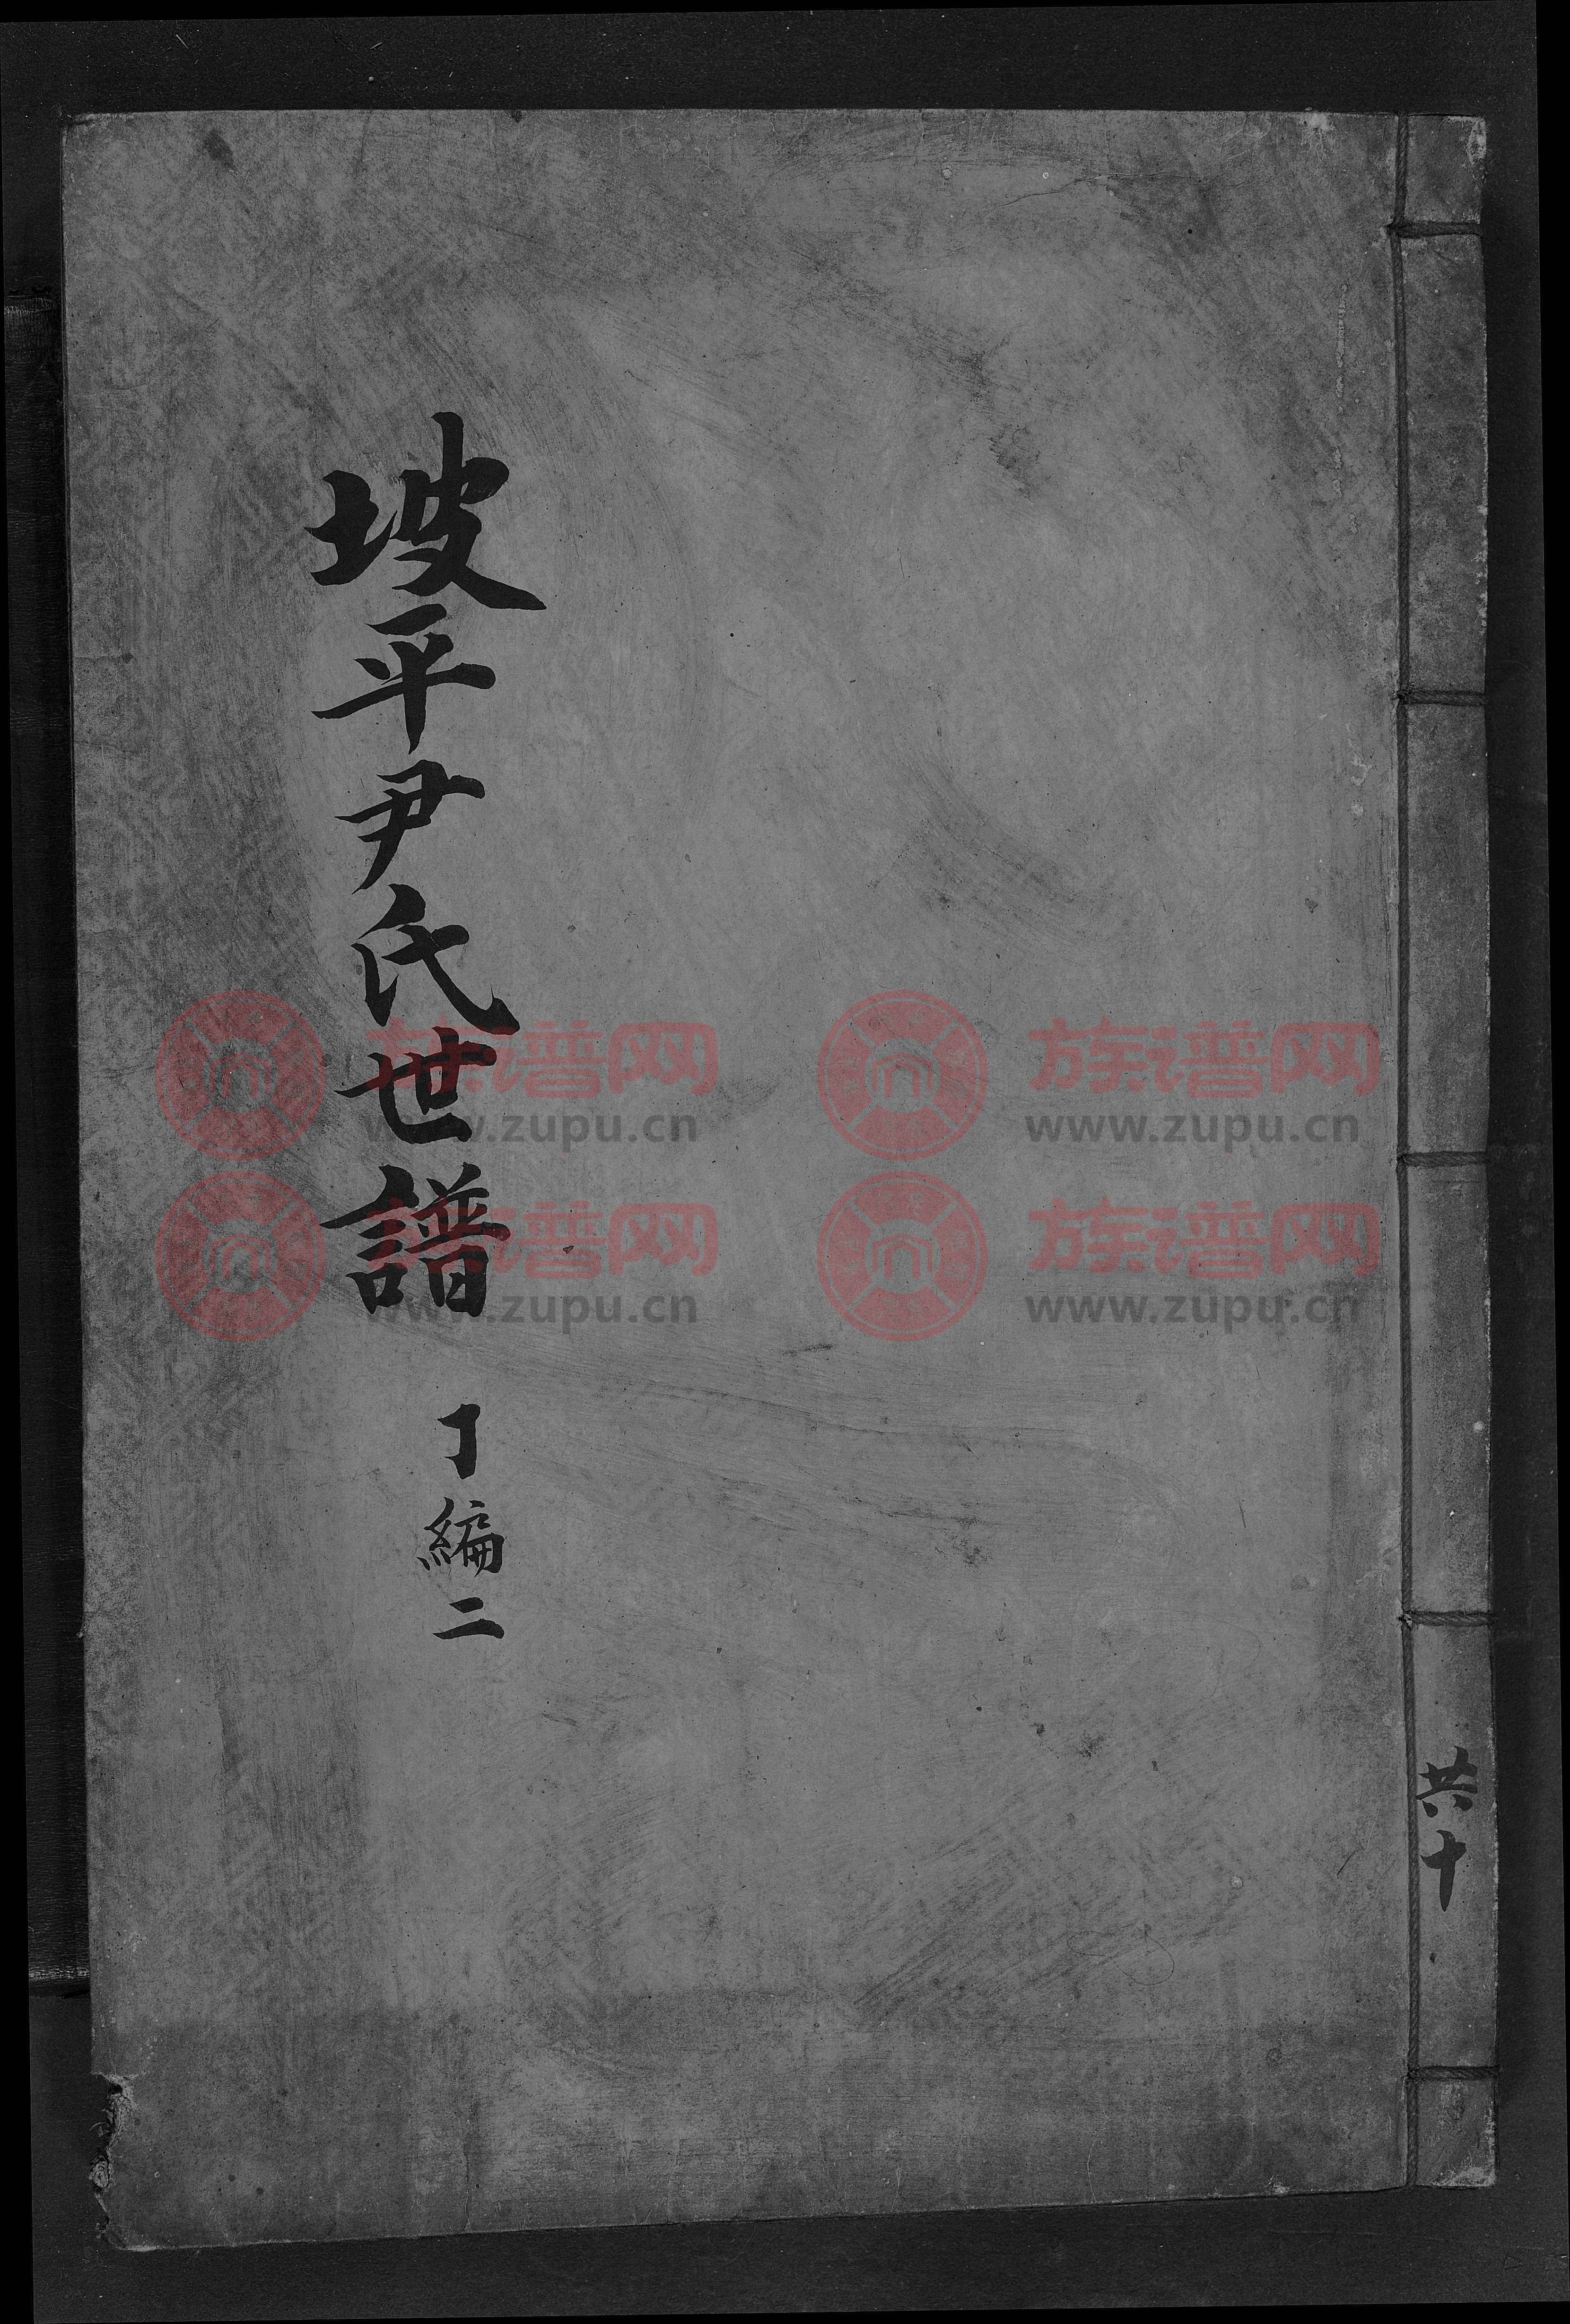 坡平尹氏世譜
丁編二
共十
族谱网
www.zupu.cn
族谱网
www.zupu.cn
族谱网
www.zupu.cn
族谱网
www.zupu.cn